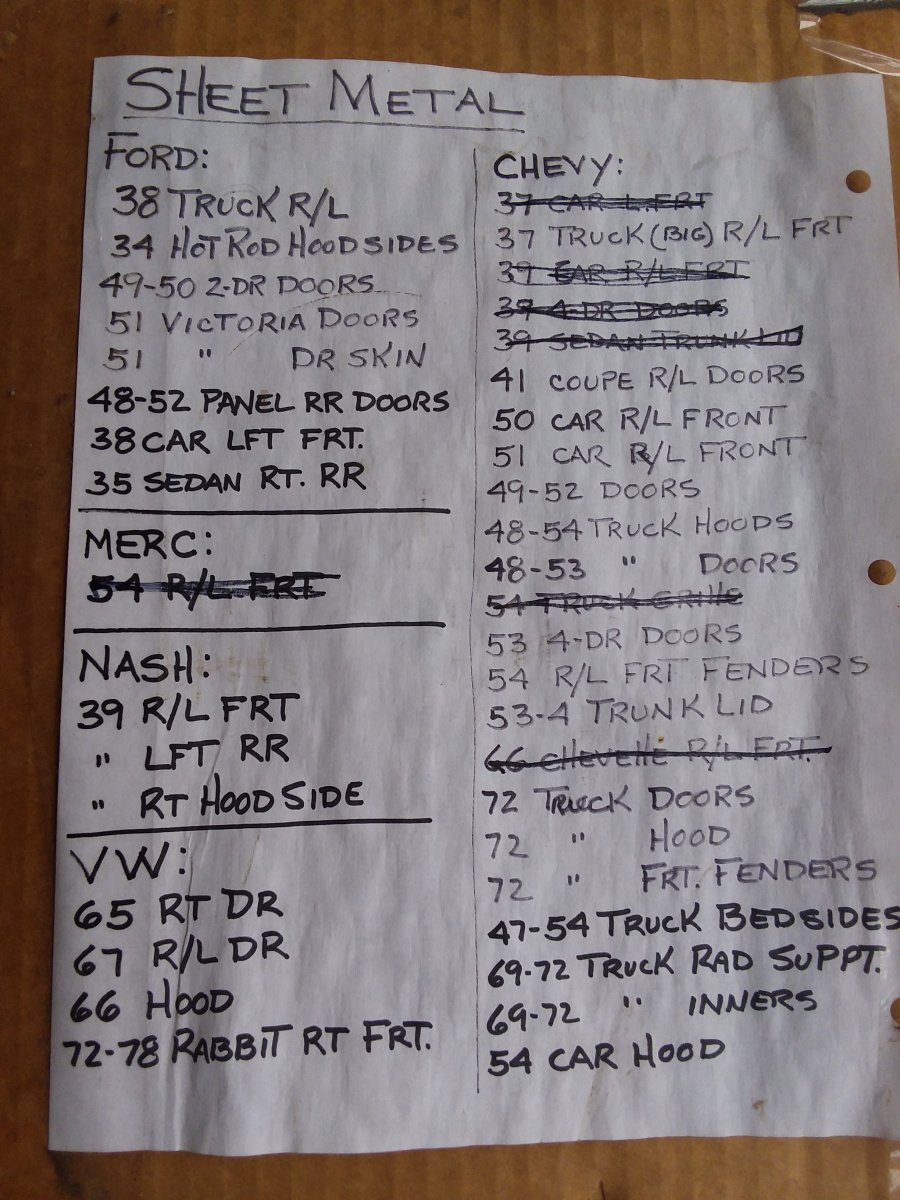 SHEET METAL
FORD:
38 TRUCK R/L
34 HOT ROD HOOD SIDES
49-50 2-DR DOORS
51 VICTORIA DOORS
51 " DR SKIN
48-52 PANEL RR DOORS
38 CAR LFT FRT.
35 SEDAN RT. RR
MERC:
54 R/L FRT
NASH:
39 R/L FRT
" LFT RR
" RT HOOD SIDE
VW:
65 RT DR
67 R/L DR
66 HOOD
72-78 RABBIT RT FRT.
CHEVY:
37 CAR L.FRT
37 TRUCK (BIG) R/L FRT
39 CAR R/L FRT
39 4-DR DOORS
39 SEDAN TRUNK LID
41 COUPE R/L DOORS
50 CAR R/L FRONT
51 CAR R/L FRONT
49-52 DOORS
48-54 TRUCK HOODS
48-53 " DOORS
54 TRUCK GRILLE
53 4-DR DOORS
54 R/L FRT FENDERS
53-4 TRUNK LID
66 CHEVELLE R/L FRT.
72 TRUCK DOORS
72 " HOOD
72 " FRT. FENDERS
47-54 TRUCK BEDSIDES
69-72 TRUCK RAD SUPPT.
69-72 " INNERS
54 CAR HOOD